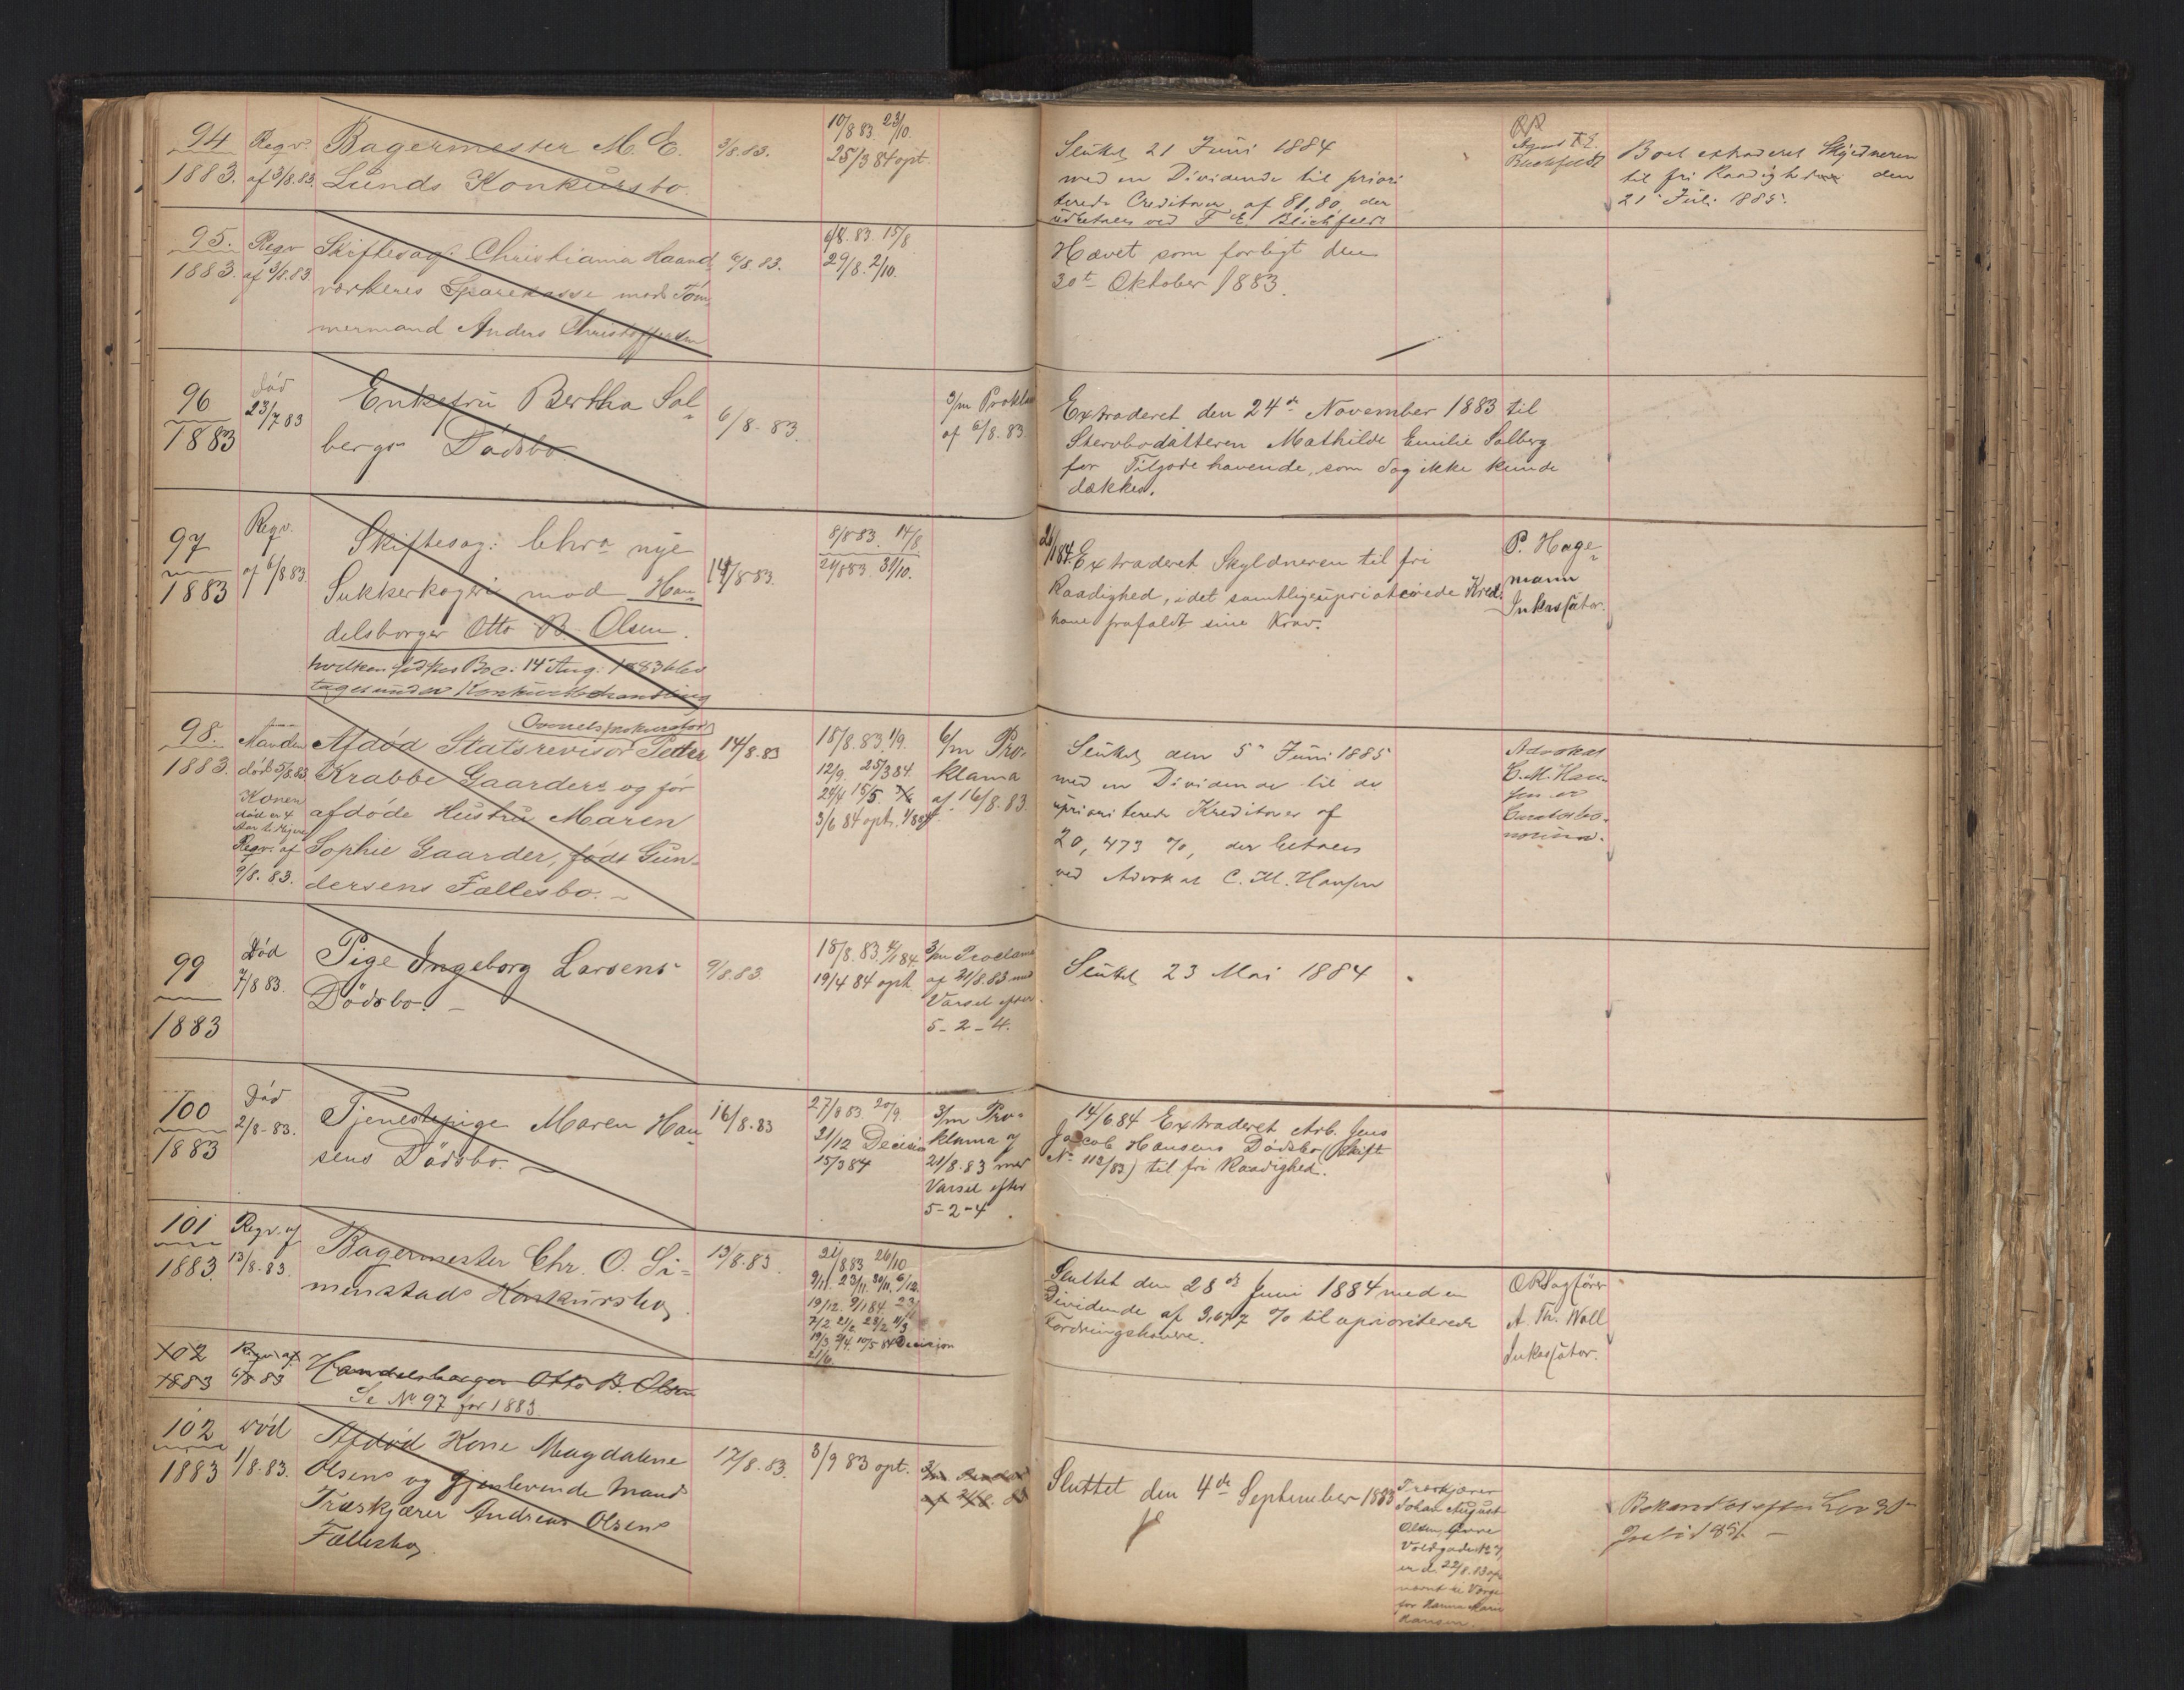 94
1883.
Reqv.
af 3/8.83.
Bagermester M. E.
Lunds Konkursbo.
3/8.83.
10/8 83. 23/10.
25/3 84 opt.
Slúttet 21 Juni 1884
med en Dividende til priori
terede Creditorer af 81,80, der
udbetales ved F. E. Bleichfeldt
Agent F. E.
Bleichfeldt
Boet extraderet Skyldneren
til fri Raadighed den
21 Juli 1885.
95.
1883.
Reqv
af 3/8.83.
Skiftesag: Christiania Haand
værkeres Sparekasse mod Töm
mermand Anders Christoffersen
6/8.83.
6/8.83. 15/8
29/8. 2/10.
Hævet som forligt den
30te Oktober 1883.
96
1883
Död
23/7 83
Enkefru Bertha Sol-
bergs Dödsbo
6/8-83.
3/m Proklama
af 6/8.83.
Extraderet den 24de November 1883 til
Stervbodatteren Mathilde Emilie Solberg
for Tilgodehavende, som dog ikke kunde
dækkes.
97
1883
Reqv.
af 6/8 83.
Skiftesag: Chra nye
Sukkerkogeri mod Han-
delsborger Otto B. Olsen.
hvilken sidstes Bo d. 14 Aug. 1883 blev
taget under Konkursbehandling
14/8 83.
8/8 83. 14/8
21/8 83. 30/10.
Extraderet Skyldneren til fri
Raadighed, idet samtlige upriorterede Kred.
have frafaldt sine Krav.
P. Hage-
mann
Inkassator.
98.
1883.
Manden
död 5/8.83
Konen
död er 4
Aar tidligere
Reqv. af
9/8.83.
Overretsprokurator
Afdød Statsrevisor Petter
Krabbe Gaarders og før
afdøde Hustru Maren
Sophie Gaarder, født Gun-
dersens Fællesbo.
14/8.83
18/8.83. 1/9.
12/9. 25/3 84.
24/4 15/5
3/6 84 opt.
6/m Pro-
klama
af 16/8.83
Slúttet den 5te Juni 1885
med en Dividende til de
upriorterede Kreditorer af
20,473 %, der betales
ved Advokat C. M. Hansen
Advokat
C. M. Han
sen er
Curator bo-
norum.
99
1883
Död
7/8 83.
Pige Ingeborg Larsens
Dödsbo.
9/8.83
18/8.83. 4/1 84.
19/4 84 opt.
3/m Proclama
af 21/8.83 med
Varsel efter
5-2-4.
Slúttet 23 Mai 1884
100
1883
Död
2/8-83.
Tjenestepige Maren Han-
sens Dödsbo.
16/8.83
27/8 83. 20/9.
21/12 Decision
15/3 84
3/m Pro-
klama af
21/8.83 med
Varsel efter
5-2-4.
14/6 84 Extraderet Arb. Jens
Jacob Hansens Dödsbo (Skift
No 112/83) til fri Raadighed.
101
1883.
Reqv. af
13/8-83.
Bagermester Chr. O. Si-
menstads Konkursbo.
13/8.83.
21/8 83 26/10
9/11. 23/11. 30/11. 6/12.
19/12. 9/1 84.
7/2
19/3 9/4. 10/5 84 Decision
21/6.
Sluttet den 28de Juni 1884 med en
Dividende af 3,677 % til upriorterede
Fordringshavere.
ORSagförer
A. Th. Woll
Inkassator.
102
1883
Reqv. af
6/8 83
Handelsborger Otto B. Olsen
Se No 97 for 1883.
102
1883
Död
1/8.83.
Afdød Kone Magdalene
Olsens og gjenlevende Mand
Træskjærer Andreas Olsens
Fællesbo
17/8.83.
3/9 83 opt.
Sluttet den 4de September 1883
Træskjærer
Johan August
Olsen, Övre
Voldgade No 7,
er d. 22/8.83 op
nævnt til Værge
for Hanna Marie
Hansen.